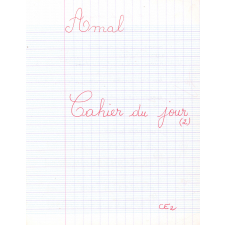 Amal
Cahier du jour
(2)
CE2